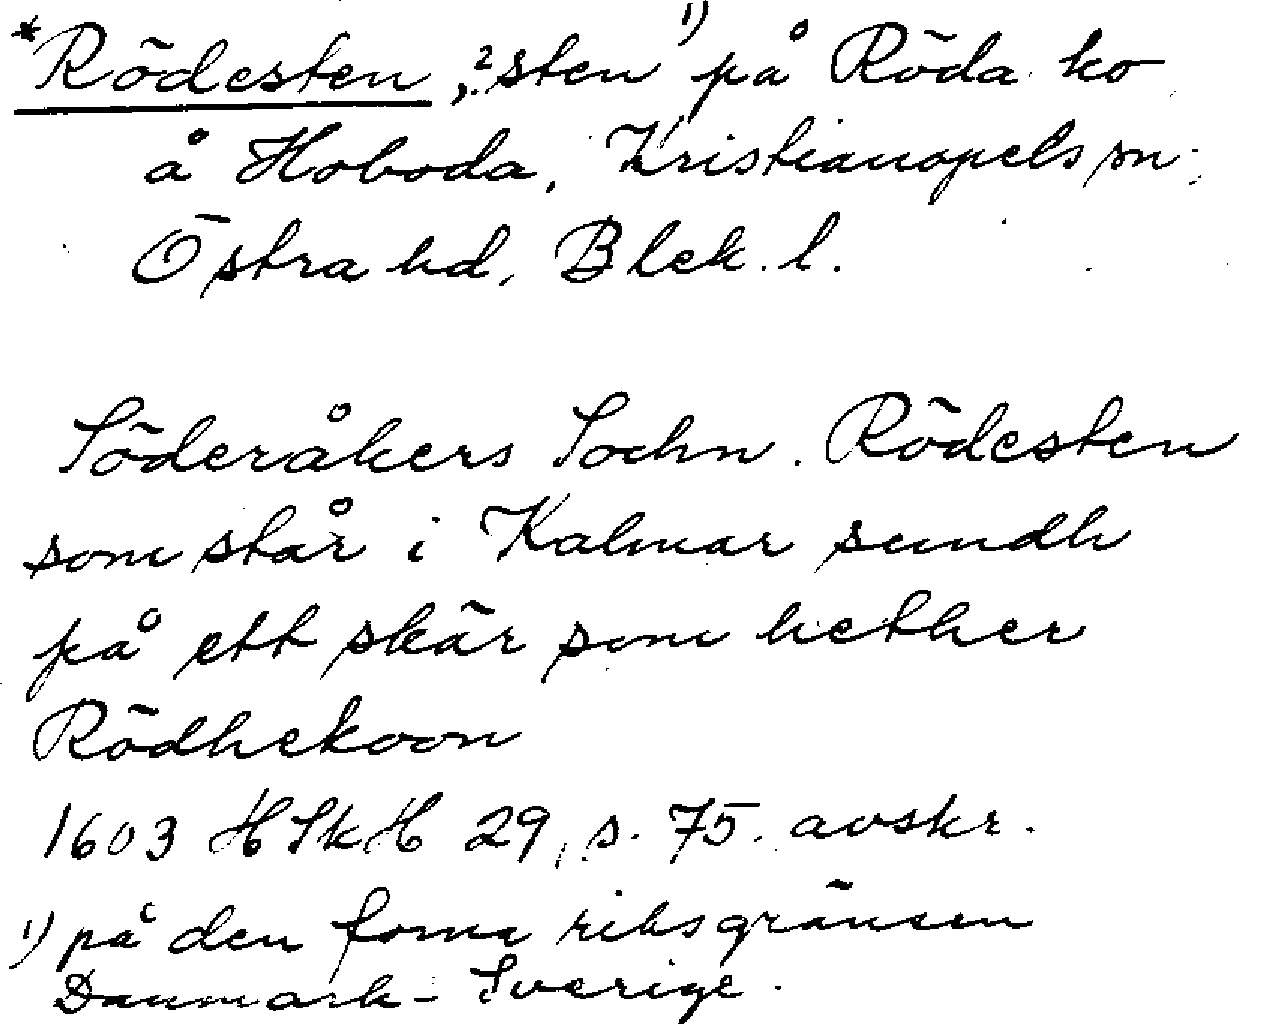 *Rödesten, ²sten ¹) på Röda ko
å Hoboda, Kristianopels sn.
Östra hd, Blek. l.
Söderåkers Sochn. Rödesten
som står i Kalmar sundh
på ett skär som hether
Rödhekoon
1603 HSkH 29, s. 75. avskr.
¹) på den forna riksgränsen
Danmark - Sverige.